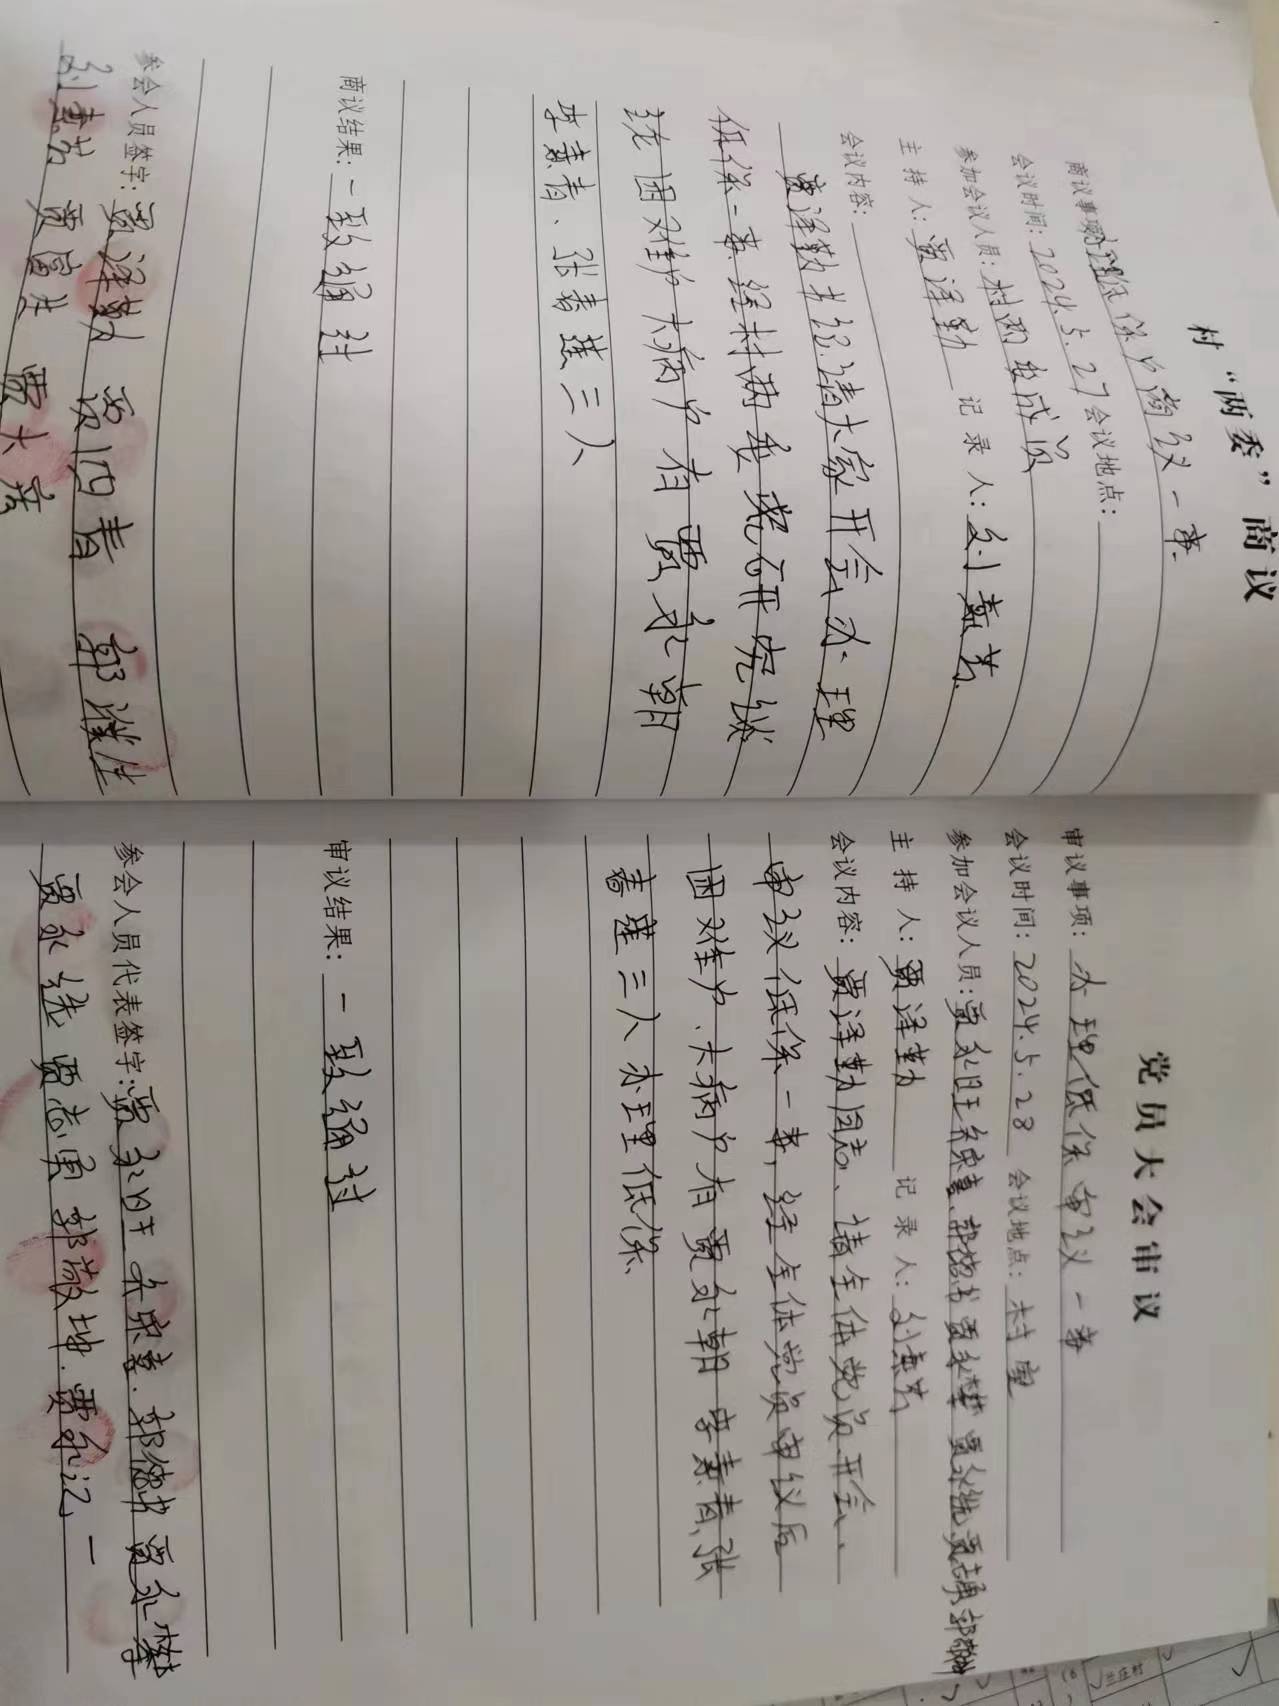 村“两委”商议
商议事项:办理低保户商议一事.
会议时间:2024.5.27会议地点:
参加会议人员:村两委成员
主 持 人:贾泽勤 记 录 人:刘素芳.
会议内容:
贾泽勤书记.请大家开会办理
低保一事.经村两委 研究
困难户大病户有 贾永朝
李素青、张春莲三人
商议结果:一致通过
参会人员签字:贾泽勤 贾四青 郭濮生
刘素芳 贾 贾大
党员大会审议
审议事项:办理低保审议一事
会议时间:2024.5.28 会议地点:村室
参加会议人员:贾永旺 郭德书 贾永攀 贾永铣 贾志勇 郭敬坤
主 持 人:贾泽勤 记 录 人:刘素芳
会议内容:贾泽勤同志、请全体党员开会、
审议低保一事,经全体党员审议后
困难户、大病户有贾永朝 李素青,张
春莲三人办理低保、
审议结果:一致通过
参会人员代表签字:贾永旺 郭德书 贾永攀
贾永铣 贾志勇 郭敬坤.贾永记 一